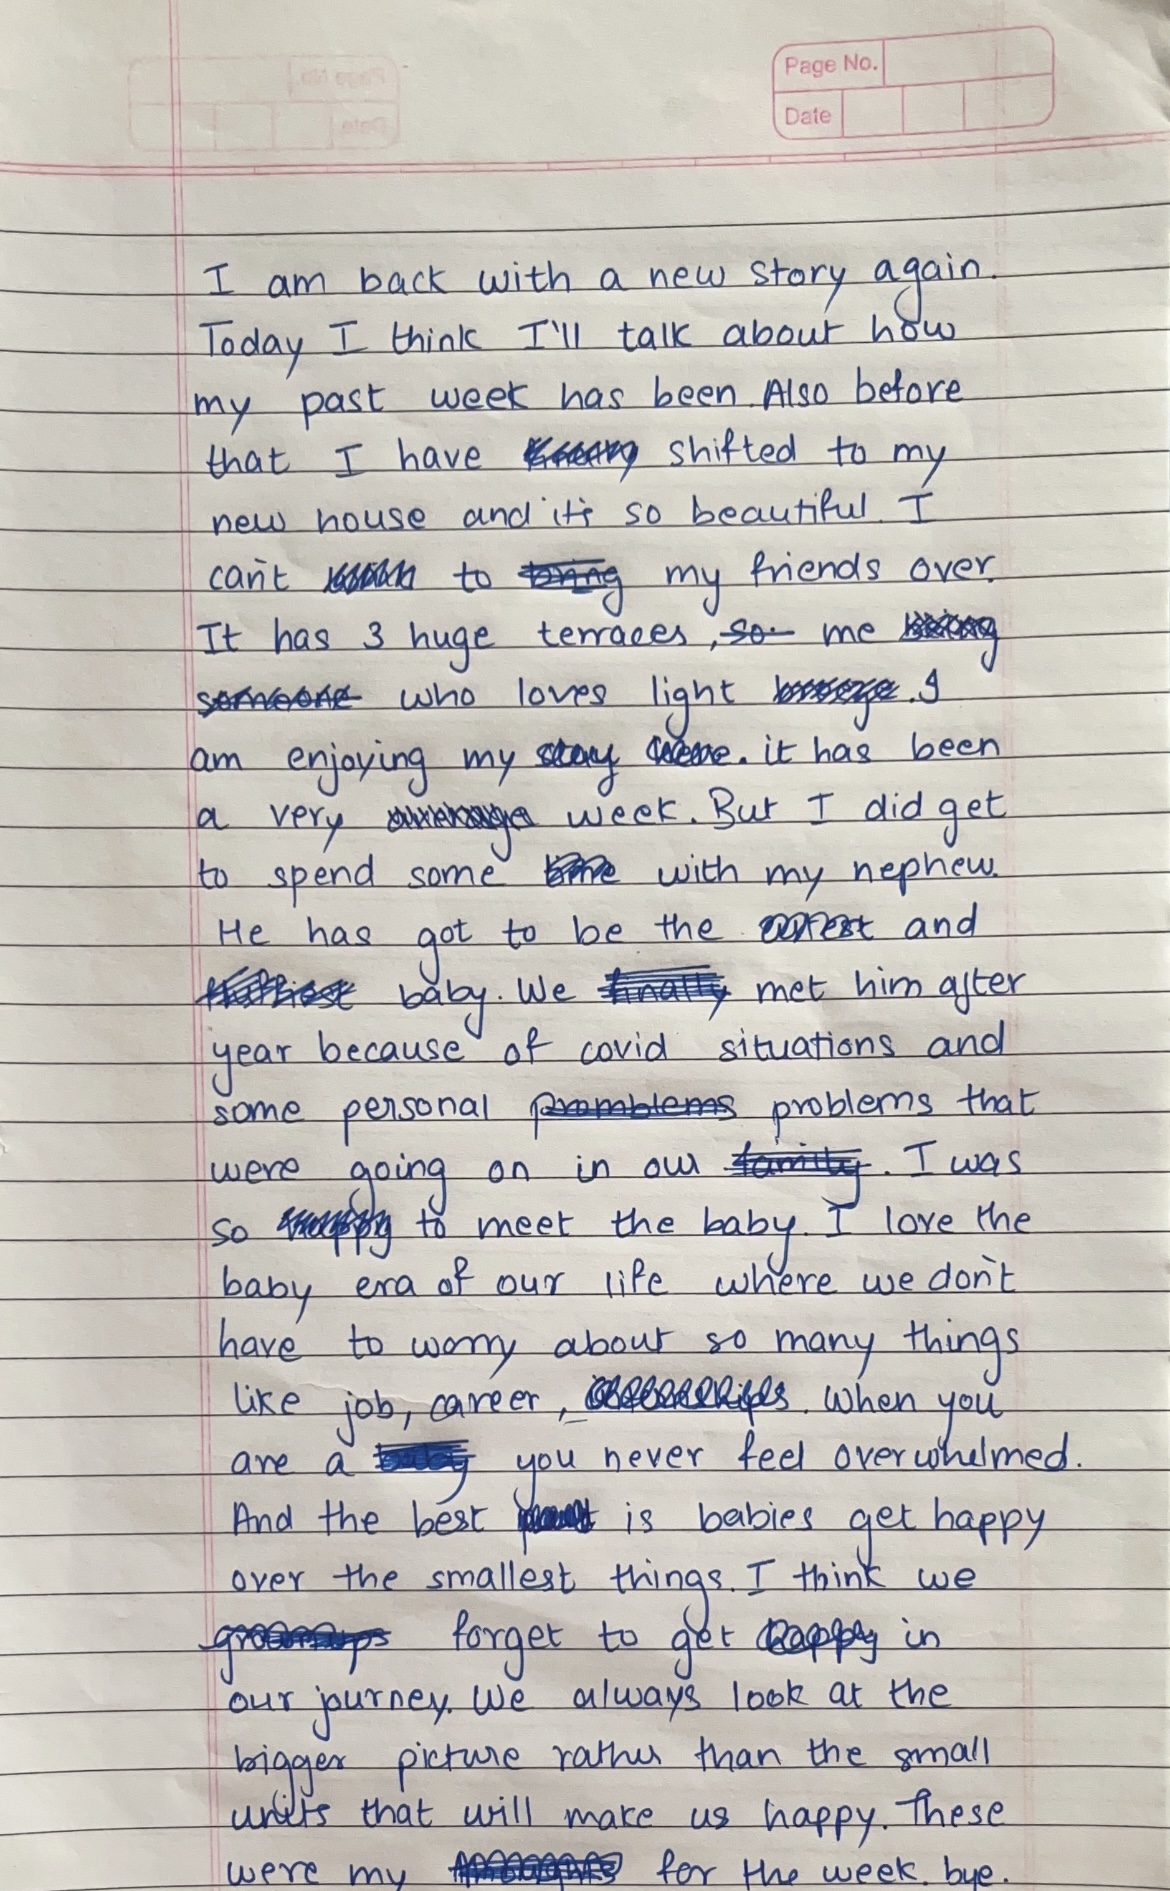 Page No.
Date
I am back with a new story again.
Today I think I'll talk about how
my past week has been. Also before
that I have shifted to my
new house and it's so beautiful. I
can't to my friends over.
It has 3 huge terraces, so me
who loves light . I
am enjoying my stay . it has been
a very week. But I did get
to spend some with my nephew.
He has got to be the and
baby. We finally met him after
year because of covid situations and
some personal promblems problems that
were going on in our family. I was
so to meet the baby. I love the
baby era of our life where we don't
have to worry about so many things
like job, career, . When you
are a you never feel overwhelmed.
And the best is babies get happy
over the smallest things. I think we
forget to get happy in
our journey. We always look at the
bigger picture rather than the small
units that will make us happy. These
were my for the week. bye.